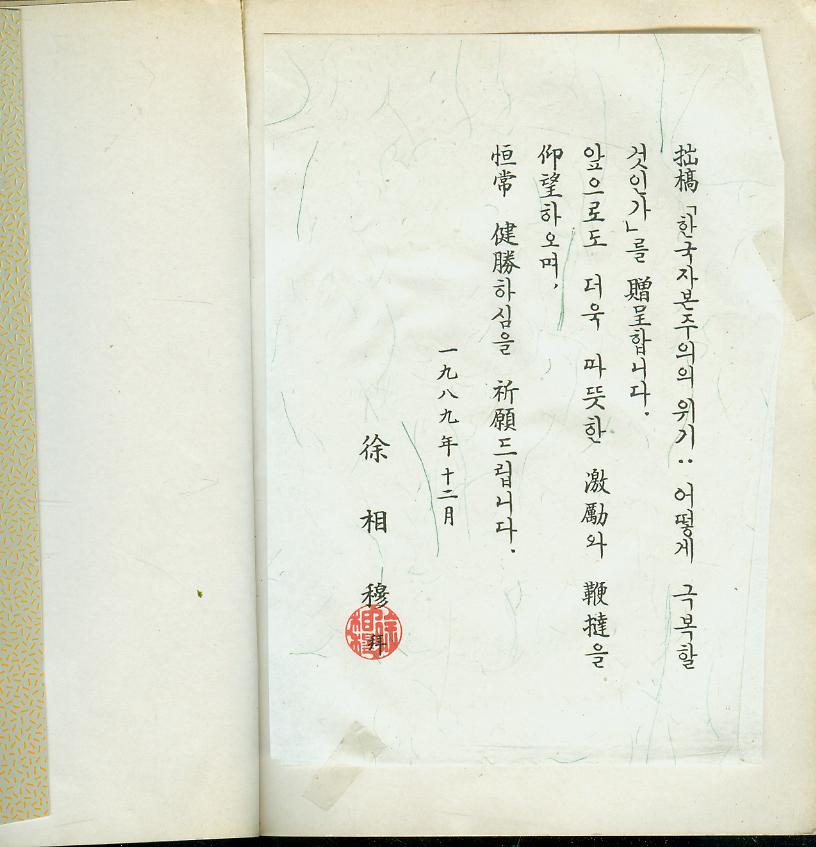 拙稿「한국자본주의의 위기 : 어떻게 극복할
것인가」를 贈呈합니다.
앞으로도 더욱 따뜻한 激勵와 鞭撻을
仰望하오며,
恒常 健勝하심을 祈願드립니다.
一九八九年 十二月
徐 相 穆
拜